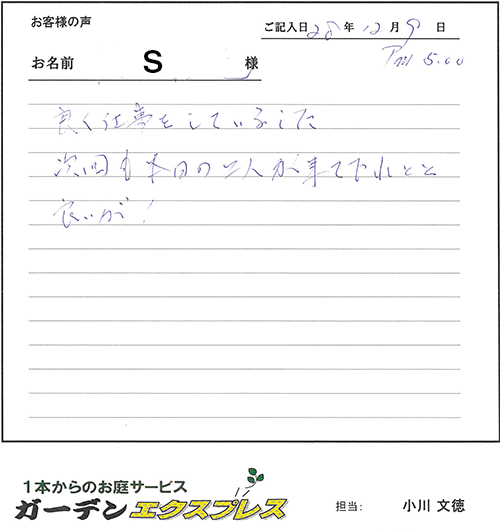 お客様の声
ご記入日 28 年 12 月 9 日
お名前 S 様
PM 5.00
良く仕事をしていました
次回も本日の二人が来て下れると
良いが!
1本からのお庭サービス
ガーデンエクスプレス
担当: 小川 文徳